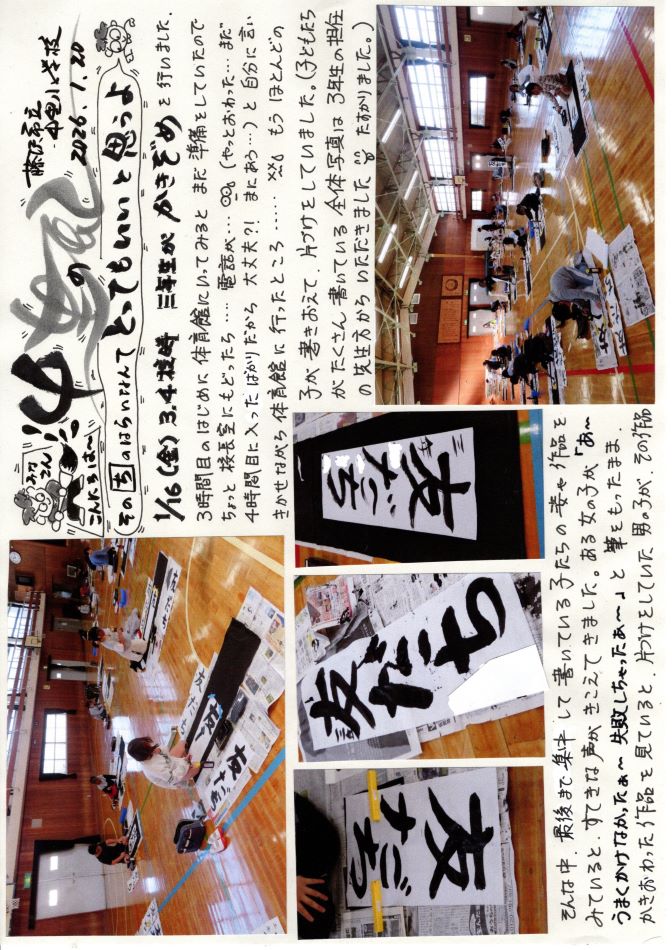 藤沢市立
小学校
2026.1.20
の
みなさん
こんにちは〜
その「ち」のはらいなんて とってもいいと思うよ
1/16(金) 3.4校時 三年生が かきぞめ を行いました。
3時間目のはじめに体育館にいってみると まだ準備をしていたので
ちょっと校長室にもどったら…… 電話が… (やっとおわった… まだ
4時間目に入ったばかりだから 大丈夫?! まにあう…)と自分に言い
きかせながら体育館に行ったところ …… もう ほとんどの
子が書きおえて、片づけをしていました。(子どもたち
がたくさん書いている全体写真は 3年生の担任
の先生方からいただきました たすかりました。)
友だち
友だち
友だち
友だち
友だち
そんな中、最後まで集中して書いている子たちの姿や作品を
みていると、すてきな声がきこえてきました。ある女の子が「あ〜
うまくかけなかったぁ〜 失敗しちゃったぁ〜」と 筆をもったまま、
かきおわった作品を見ていると、片づけをしていた男の子が その作品